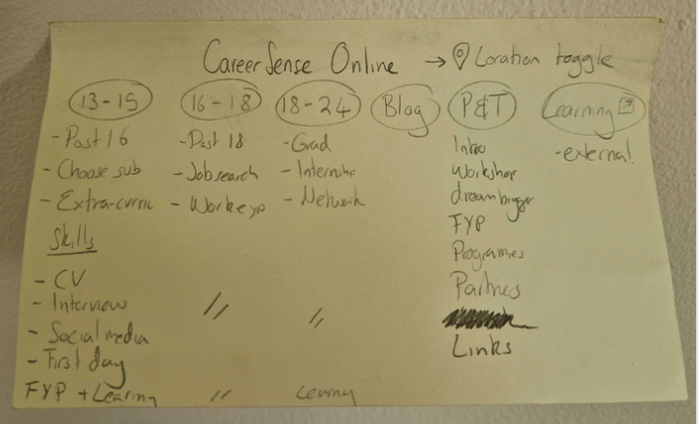 Career Sense Online → Location toggle
13-15 16-18 18-24 Blog P&T Learning
- Post 16 - Post 18 - Grad Intro - external
- Choose sub - Job search - Internship Workshop
- Extra-curric - Work exp - Network dream bigger
Skills FYP
- CV Programmes
- Interview // // Partners
- Social media
- First day Links
FYP + Learning // Learning